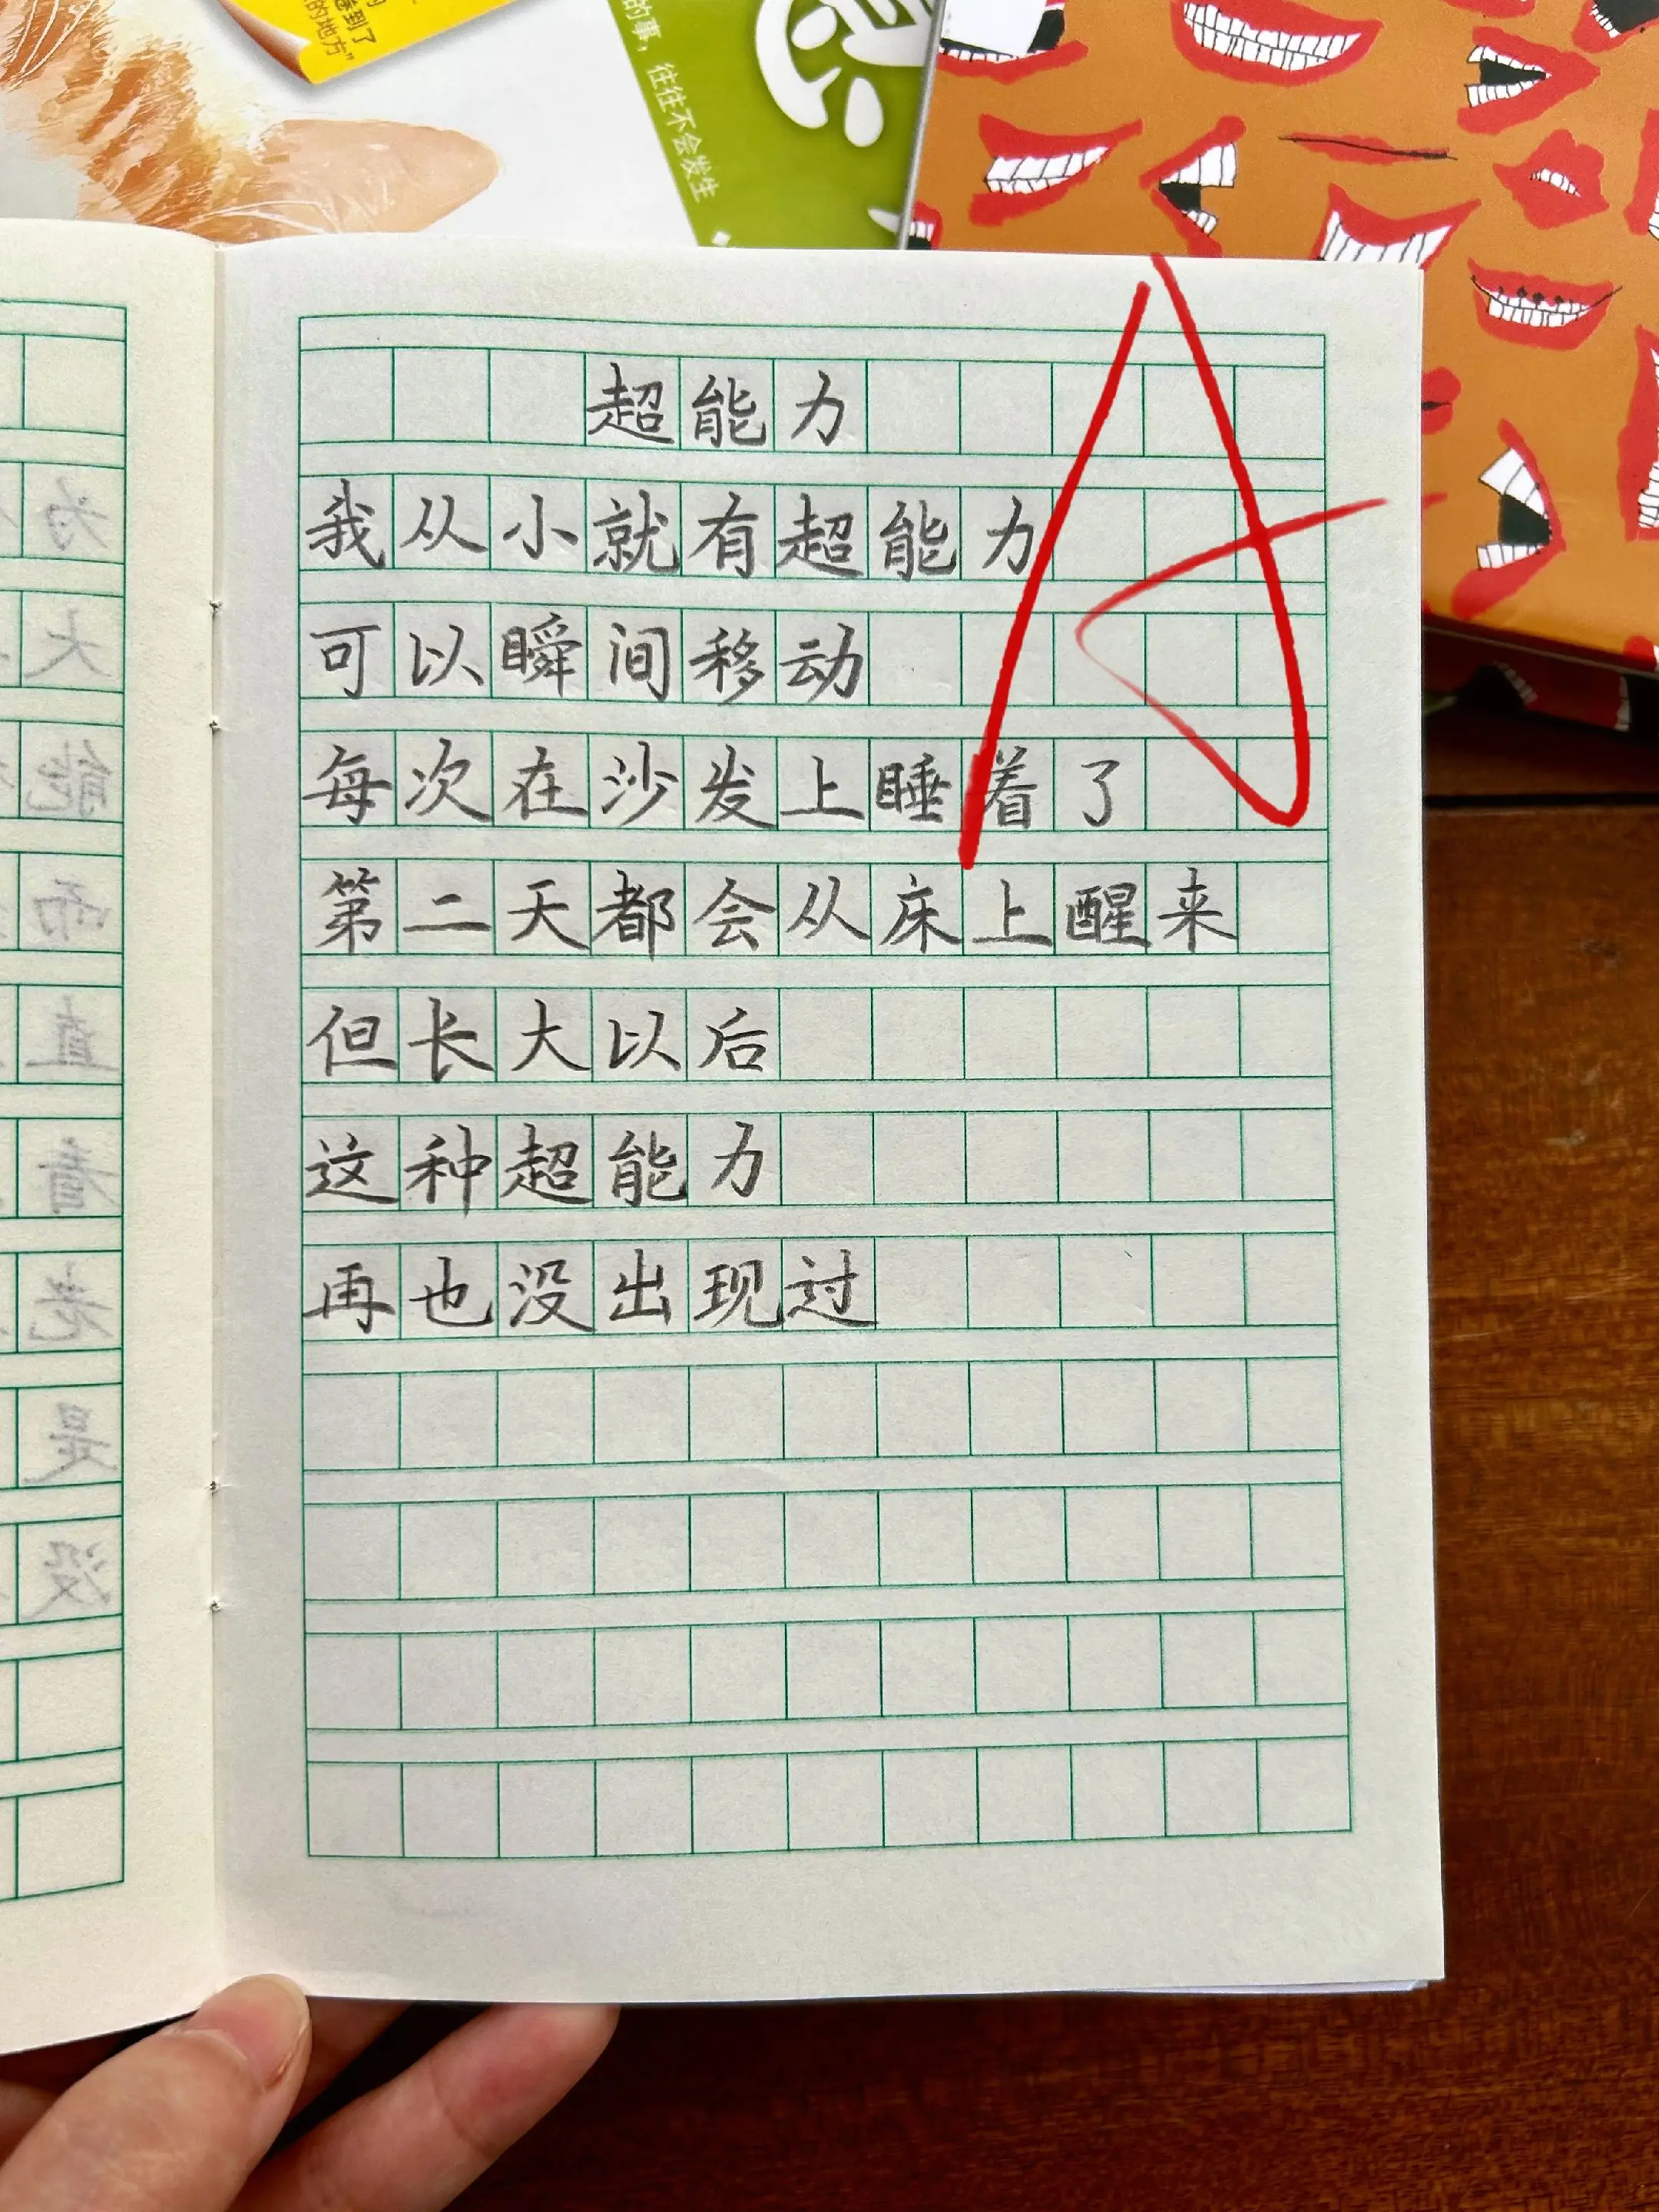 看到了
的地方”
的事，往往不会发生
超能力
我从小就有超能力
可以瞬间移动
每次在沙发上睡着了
第二天都会从床上醒来
但长大以后
这种超能力
再也没出现过
A
为
大
能
而
直
着
老
是
没